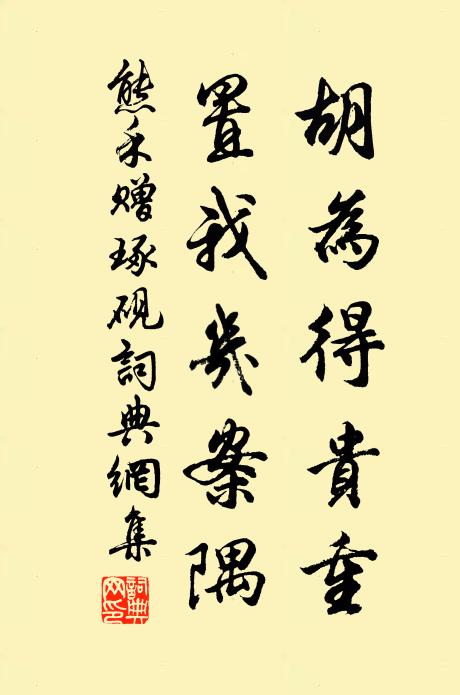 胡為得貴重
置我几案隅
熊禾贈琢硯詞典網集
詞典网印